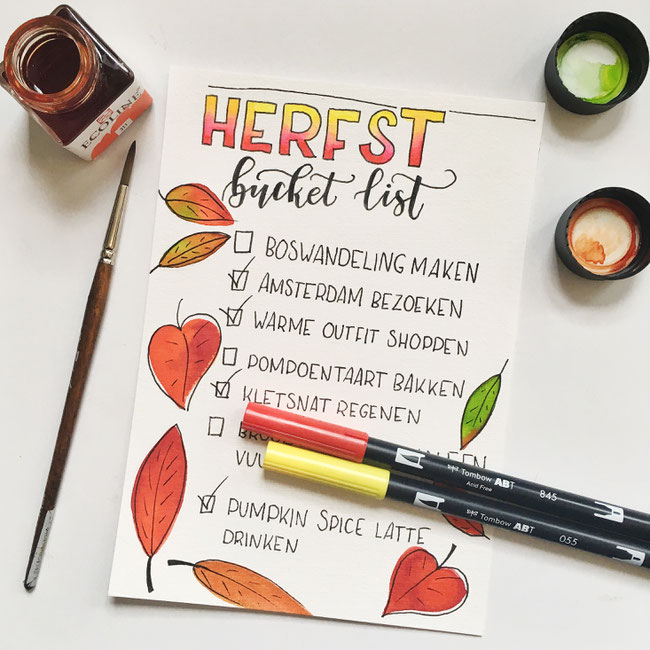 HERFST
bucket list
BOSWANDELING MAKEN
AMSTERDAM BEZOEKEN
WARME OUTFIT SHOPPEN
POMPOENTAART BAKKEN
KLETSNAT REGENEN
PUMPKIN SPICE LATTE
DRINKEN
ECOLINE
Tombow ABT
Acid Free
845
Tombow ABT
055